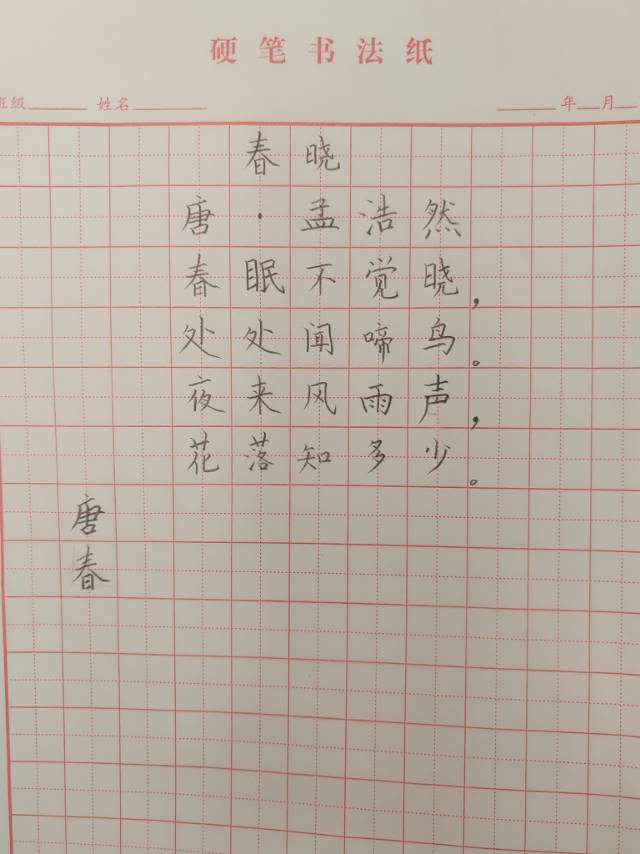 硬笔书法纸
班级 姓名 年 月
春晓
唐·孟浩然
春眠不觉晓，
处处闻啼鸟。
夜来风雨声，
花落知多少。
唐
春